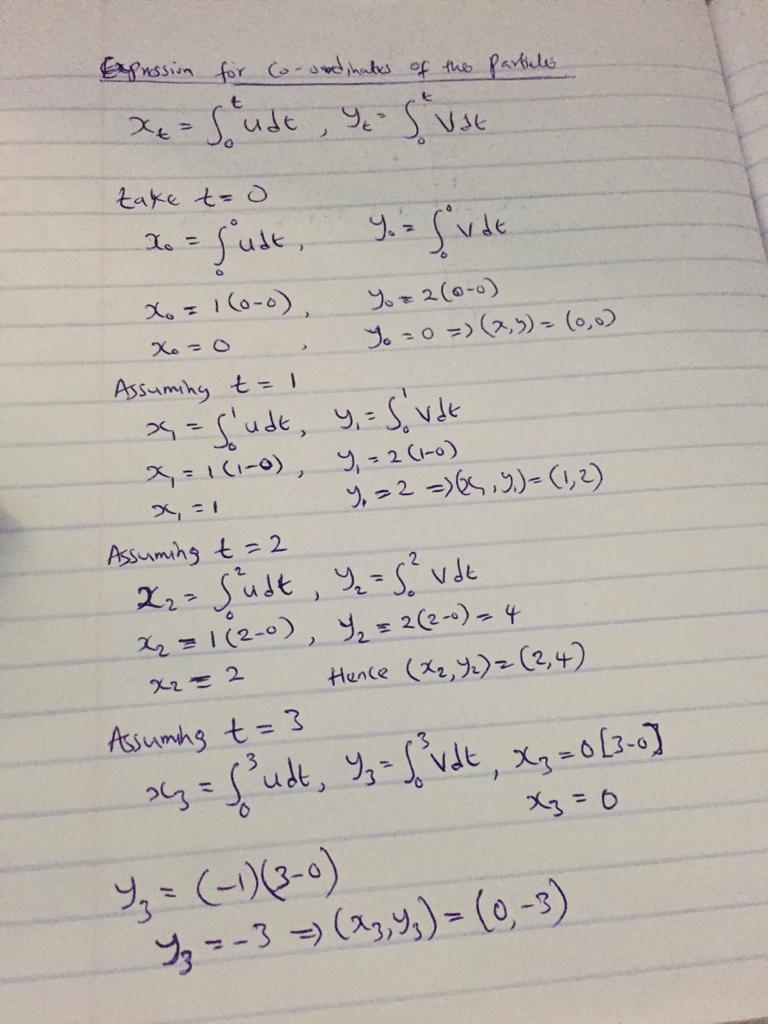 Expression for Co-ordinates of the Particle
x_t = ∫₀ᵗ udt , y_t = ∫₀ᵗ Vdt
take t = 0
x₀ = ∫₀⁰ udt , y₀ = ∫₀⁰ vdt
x₀ = 1(0-0) , y₀ = 2(0-0)
x₀ = 0 , y₀ = 0 => (x,y) = (0,0)
Assuming t = 1
x₁ = ∫₀¹ udt , y₁ = ∫₀¹ Vdt
x₁ = 1(1-0) , y₁ = 2(1-0)
x₁ = 1 y₁ = 2 => (x₁, y₁) = (1,2)
Assuming t = 2
x₂ = ∫₀² udt , y₂ = ∫₀² Vdt
x₂ = 1(2-0) , y₂ = 2(2-0) = 4
x₂ = 2 Hence (x₂, y₂) = (2,4)
Assuming t = 3
x₃ = ∫₀³ udt , y₃ = ∫₀³ Vdt , x₃ = 0[3-0]
x₃ = 0
y₃ = (-1)(3-0)
y₃ = -3 => (x₃, y₃) = (0,-3)